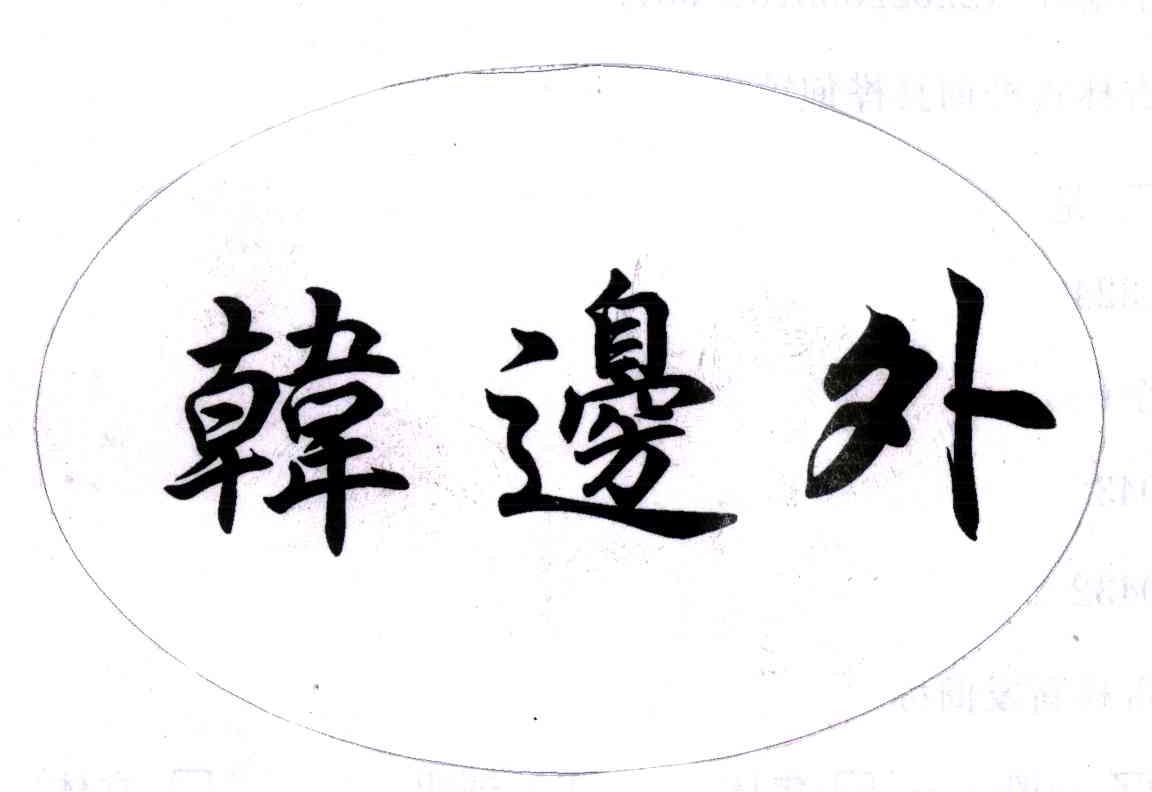 韓邊外